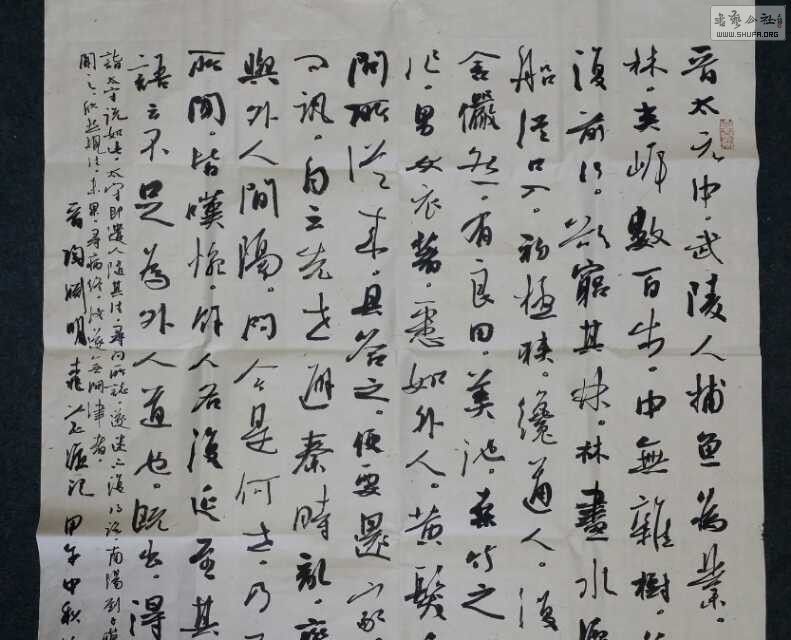 晋太元中。武陵人捕鱼为業。
林。夹岸數百步。中無雜樹。
復前行。欲窮其林。林盡水源
船從口入。初極狹。纔通人。復
舍儼然。有良田。美池。桑竹之
作。男女衣著。悉如外人。黄髮
問所從来。具答之。便要還家
问訊。自云先世避秦時亂。
與外人間隔。問今是何世。乃
所聞。皆嘆惋。餘人各復延至其
語云不足為外人道也。既出。得
詣太守説如此。太守即遣人隨其往。尋向所誌。遂迷不復得路。南陽劉子驥
聞之。欣然規往。未果。尋病终。後遂無问津者。
晋陶渊明桃花源记 甲午中秋
書藝公社
WWW.SHUFA.ORG